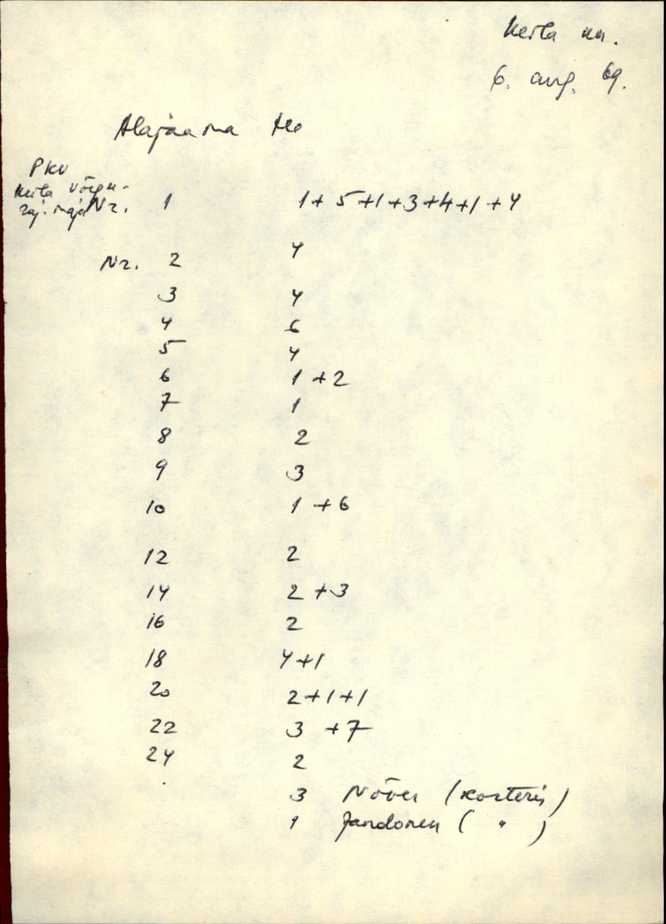 Keila kn.
6. aug. 69.
Alajaama tee
PKV
Keila võrgu-
raj. maja Nr. 1 1+5+1+3+4+1+4
Nr. 2 4
3 4
4 6
5 4
6 1+2
7 1
8 2
9 3
10 1+6
12 2
14 2+3
16 2
18 4+1
20 2+1+1
22 3+7
24 2
3 Nõver (korteris)
1 Jandonen ( " )